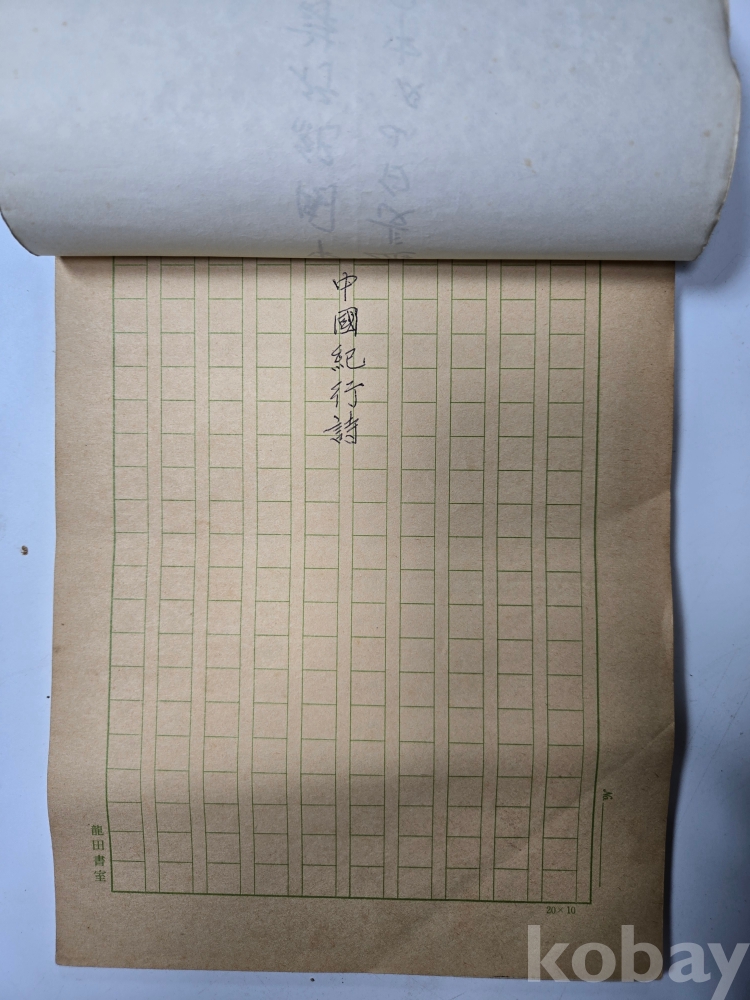 中國紀行詩
龍田書室
20×10
№
kobay